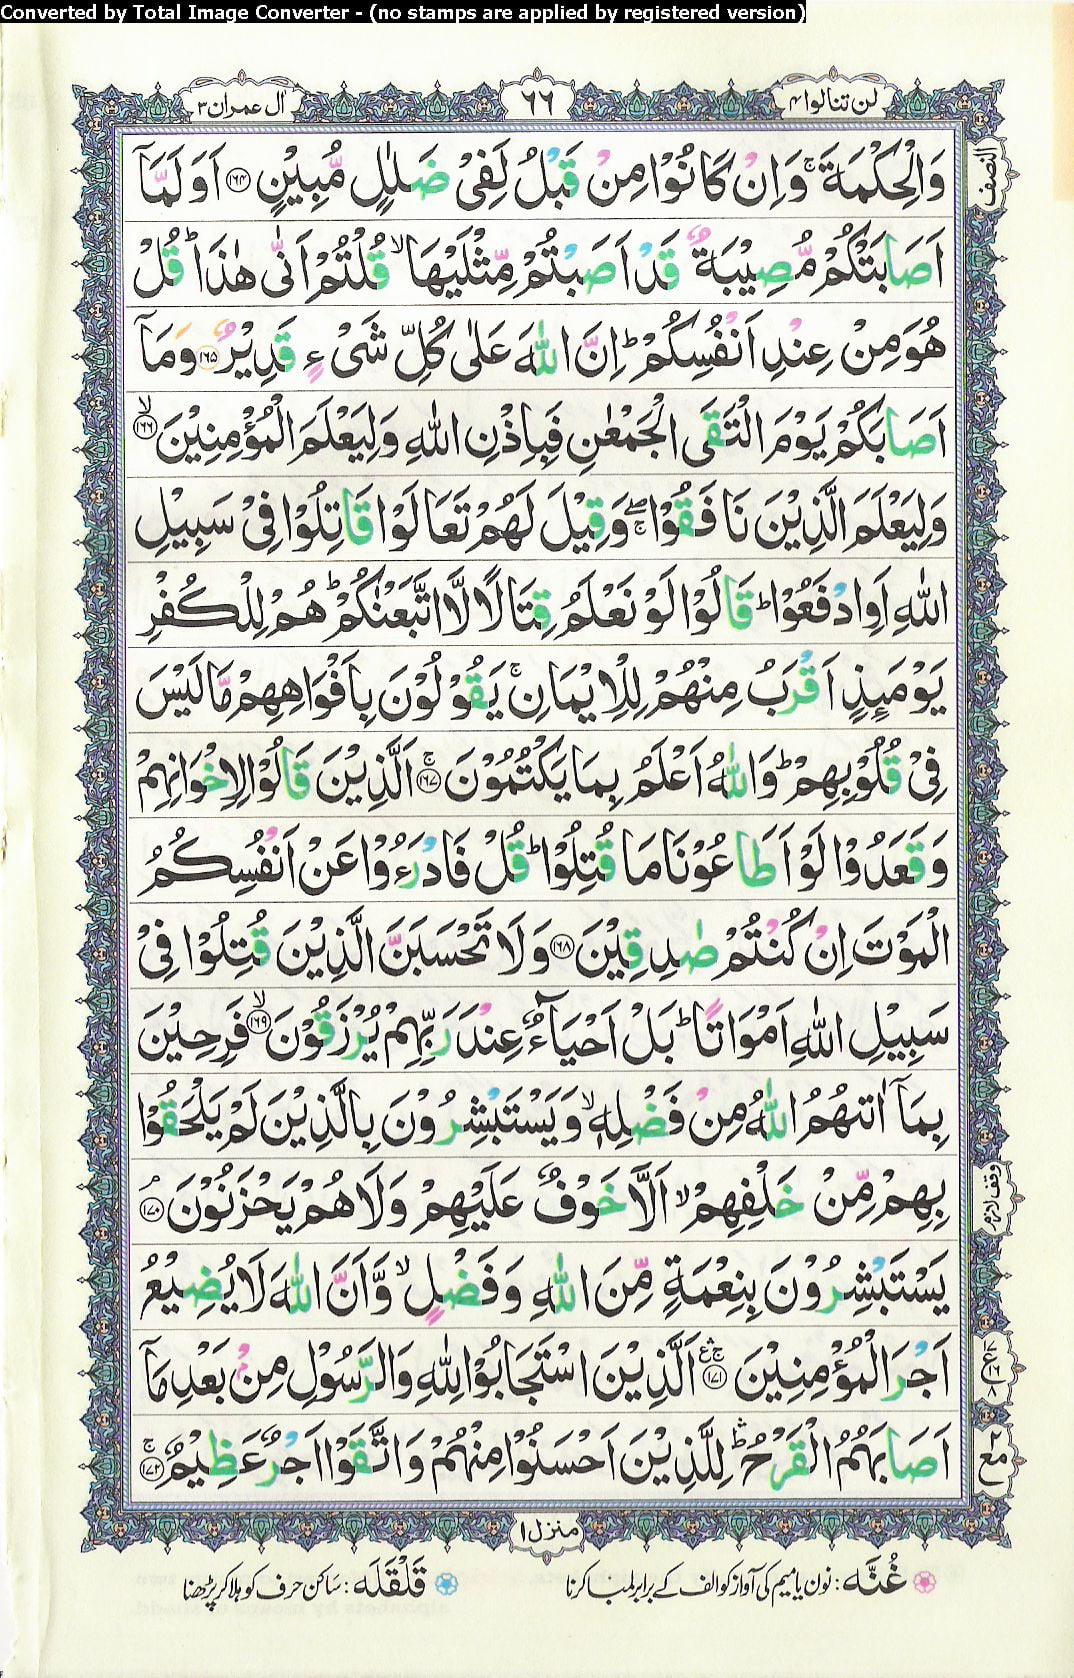 Converted by Total Image Converter - (no stamps are applied by registered version)
لن تنالوا ۴
٦٦
ال عمران ۳
النصف
وَالْحِكْمَةَ ۚ وَاِنْ كَانُوْا مِنْ قَبْلُ لَفِیْ ضَلٰلٍ مُّبِیْنٍ ﴿۱۶۴﴾ اَوَلَمَّاۤ
اَصَابَتْكُمْ مُّصِیْبَةٌ قَدْ اَصَبْتُمْ مِّثْلَیْهَا ۙ قُلْتُمْ اَنّٰی هٰذَا ؕ قُلْ
هُوَ مِنْ عِنْدِ اَنْفُسِكُمْ ؕ اِنَّ اللّٰهَ عَلٰی كُلِّ شَیْءٍ قَدِیْرٌ ﴿۱۶۵﴾ وَمَاۤ
اَصَابَكُمْ یَوْمَ الْتَقَی الْجَمْعٰنِ فَبِاِذْنِ اللّٰهِ وَلِیَعْلَمَ الْمُؤْمِنِیْنَ ﴿۱۶۶﴾ ۙ
وَلِیَعْلَمَ الَّذِیْنَ نَافَقُوْا ۖۚ وَقِیْلَ لَهُمْ تَعَالَوْا قَاتِلُوْا فِیْ سَبِیْلِ
اللّٰهِ اَوِادْفَعُوْا ؕ قَالُوْا لَوْ نَعْلَمُ قِتَالًا لَّا اتَّبَعْنٰكُمْ ؕ هُمْ لِلْكُفْرِ
یَوْمَىِٕذٍ اَقْرَبُ مِنْهُمْ لِلْاِیْمَانِ ۚ یَقُوْلُوْنَ بِاَفْوَاهِهِمْ مَّا لَیْسَ
فِیْ قُلُوْبِهِمْ ؕ وَاللّٰهُ اَعْلَمُ بِمَا یَكْتُمُوْنَ ﴿۱۶۷﴾ ۚ اَلَّذِیْنَ قَالُوْا لِاِخْوَانِهِمْ
وَقَعَدُوْا لَوْ اَطَاعُوْنَا مَا قُتِلُوْا ؕ قُلْ فَادْرَءُوْا عَنْ اَنْفُسِكُمُ
الْمَوْتَ اِنْ كُنْتُمْ صٰدِقِیْنَ ﴿۱۶۸﴾ وَلَا تَحْسَبَنَّ الَّذِیْنَ قُتِلُوْا فِیْ
سَبِیْلِ اللّٰهِ اَمْوَاتًا ؕ بَلْ اَحْیَآءٌ عِنْدَ رَبِّهِمْ یُرْزَقُوْنَ ﴿۱۶۹﴾ ۙ فَرِحِیْنَ
بِمَاۤ اٰتٰىهُمُ اللّٰهُ مِنْ فَضْلِهٖ ۙ وَیَسْتَبْشِرُوْنَ بِالَّذِیْنَ لَمْ یَلْحَقُوْا
بِهِمْ مِّنْ خَلْفِهِمْ ۙ اَلَّا خَوْفٌ عَلَیْهِمْ وَلَا هُمْ یَحْزَنُوْنَ ﴿۱۷۰﴾ ۘ
وقف لازم
یَسْتَبْشِرُوْنَ بِنِعْمَةٍ مِّنَ اللّٰهِ وَفَضْلٍ ۙ وَّاَنَّ اللّٰهَ لَا یُضِیْعُ
اَجْرَ الْمُؤْمِنِیْنَ ﴿۱۷۱﴾ اَلَّذِیْنَ اسْتَجَابُوْا لِلّٰهِ وَالرَّسُوْلِ مِنْ بَعْدِ مَاۤ
اَصَابَهُمُ الْقَرْحُ ؕ لِلَّذِیْنَ اَحْسَنُوْا مِنْهُمْ وَاتَّقَوْا اَجْرٌ عَظِیْمٌ ﴿۱۷۲﴾ ۚ
منزل ۱
غُنَّه: نون یا میم کی آواز کو الف کے برابر لمبا کرنا
قَلْقَلَه: ساکن حرف کو ہلا کر پڑھنا